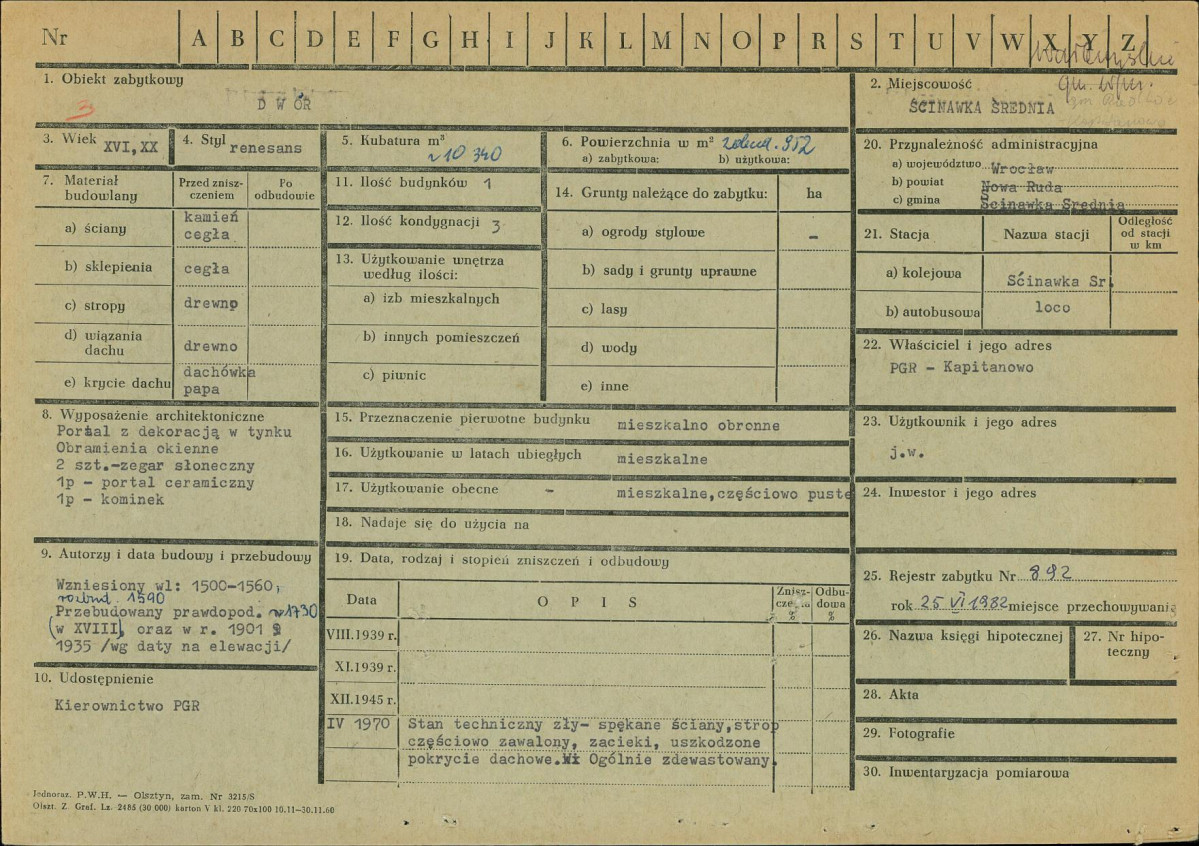 Nr A B C D E F G H I J K L M N O P R S T U V W X Y Z
1. Obiekt zabytkowy
3
DWÓR
2. Miejscowość
ŚCINAWKA ŚREDNIA
3. Wiek XVI, XX
4. Styl renesans
5. Kubatura m³
~ 10 340
6. Powierzchnia w m² 952
a) zabytkowa: b) użytkowa:
7. Materiał budowlany
Przed zniszczeniem
Po odbudowie
a) ściany kamień cegła
b) sklepienia cegła
c) stropy drewno
d) wiązania dachu drewno
e) krycie dachu dachówka papa
11. Ilość budynków 1
12. Ilość kondygnacji 3
13. Użytkowanie wnętrza
według ilości:
a) izb mieszkalnych
b) innych pomieszczeń
c) piwnic
14. Grunty należące do zabytku: ha
a) ogrody stylowe –
b) sady i grunty uprawne
c) lasy
d) wody
e) inne
20. Przynależność administracyjna
a) województwo Wrocław
b) powiat Nowa Ruda
c) gmina Ścinawka Średnia
21. Stacja Nazwa stacji Odległość od stacji w km
a) kolejowa Ścinawka Śr.
b) autobusowa loco
22. Właściciel i jego adres
PGR - Kapitanowo
8. Wyposażenie architektoniczne
Portal z dekoracją w tynku
Obramienia okienne
2 szt.-zegar słoneczny
1p - portal ceramiczny
1p - kominek
15. Przeznaczenie pierwotne budynku mieszkalno obronne
16. Użytkowanie w latach ubiegłych mieszkalne
17. Użytkowanie obecne - mieszkalne,częściowo puste
18. Nadaje się do użycia na
23. Użytkownik i jego adres
j.w.
24. Inwestor i jego adres
9. Autorzy i data budowy i przebudowy
Wzniesiony wl: 1500-1560,
rozbud. 1590
Przebudowany prawdopod. w 1730
(w XVIII), oraz w r. 1901 i
1935 /wg daty na elewacji/
10. Udostępnienie
Kierownictwo PGR
19. Data, rodzaj i stopień zniszczeń i odbudowy
Data OPIS Zniszczenia % Odbudowa %
VIII.1939 r.
XI.1939 r.
XII.1945 r.
IV 1970 Stan techniczny zły- spękane ściany,strop
częściowo zawalony, zacieki, uszkodzone
pokrycie dachowe. Ogólnie zdewastowany.
25. Rejestr zabytku Nr 892
rok 25 VI 1982 miejsce przechowywania
26. Nazwa księgi hipotecznej
27. Nr hipoteczny
28. Akta
29. Fotografie
30. Inwentaryzacja pomiarowa
Jednoraz. P.W.H. — Olsztyn, zam. Nr 3215/S
Olszt. Z. Graf. Lz. 2485 (30 000) karton V kl. 220 70x100 10.11—30.11.60